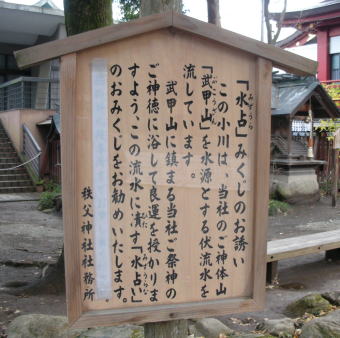 「水占」みくじのお誘い
みずうら
この小川は、当社のご神体山
「武甲山」を水源とする伏流水を
ぶこうさん
流しています。
武甲山に鎮まる当社ご祭神の
ご神徳に浴して良運を授かりま
すよう、この流水に漬す「水占い」
みずうらない
のおみくじをお勧めいたします。
秩父神社社務所